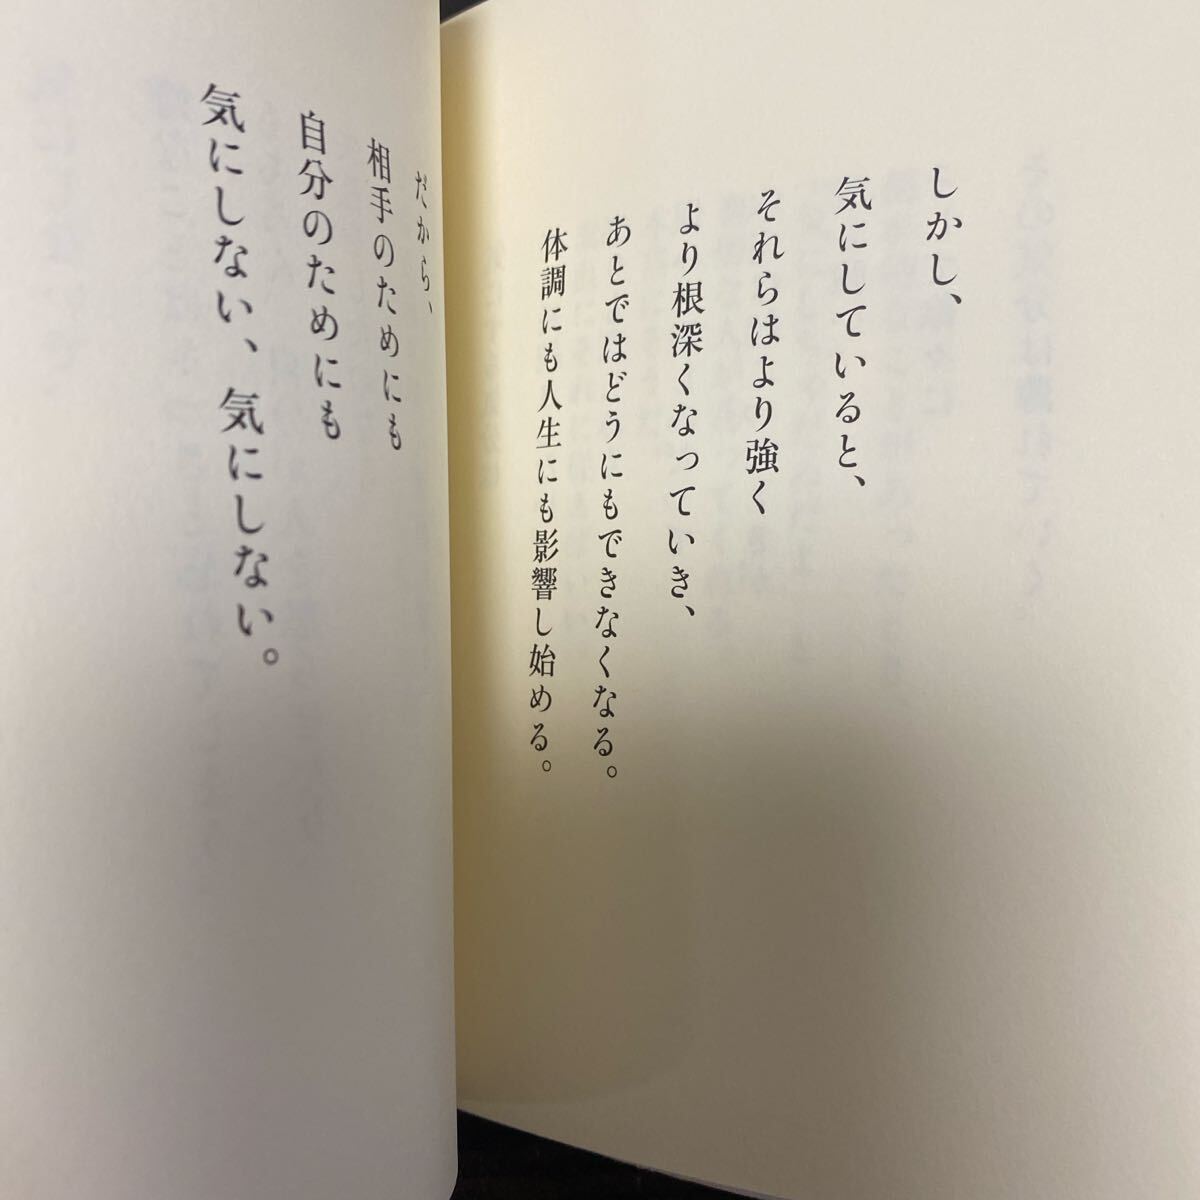 しかし、
気にしていると、
それらはより強く
より根深くなっていき、
あとではどうにもできなくなる。
体調にも人生にも影響し始める。
だから、
相手のためにも
自分のためにも
気にしない、気にしない。